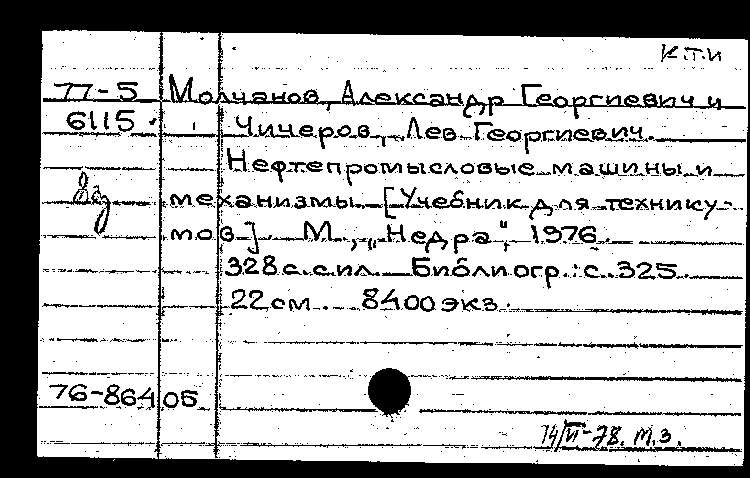 К.Т.И
77-5 Молчанов, Александр Георгиевич и
6115 Чичеров, Лев Георгиевич.
Нефтепромысловые машины и
механизмы. [Учебник для технику-
мов]. М., „Недра", 1976.
328 с. с ил. Библиогр.: с. 325.
22 см. 8400 экз.
76-86405
14/VI-78. М.З.